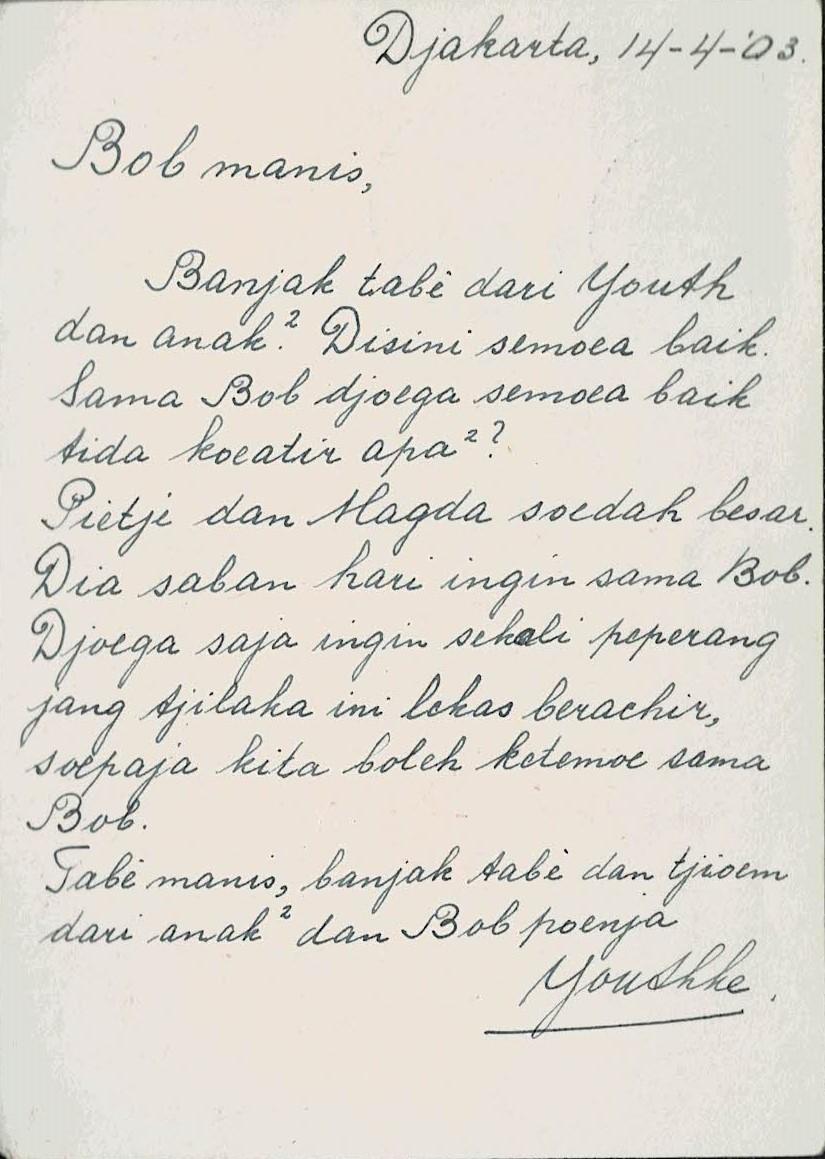 Djakarta, 14-4-'03.
Bob manis,
Banjak tabè dari Youth
dan anak². Disini semoea baik.
Sama Bob djoega semoea baik
tida koeatir apa²?
Pietje dan Magda soedah besar.
Dia saban hari ingin sama Bob.
Djoega saja ingin sekali peperang
jang tjilaka ini lekas berachir,
soepaja kita boleh ketemoe sama
Bob.
Tabè manis, banjak tabè dan tjioem
dari anak² dan Bob poenja
Youthke.